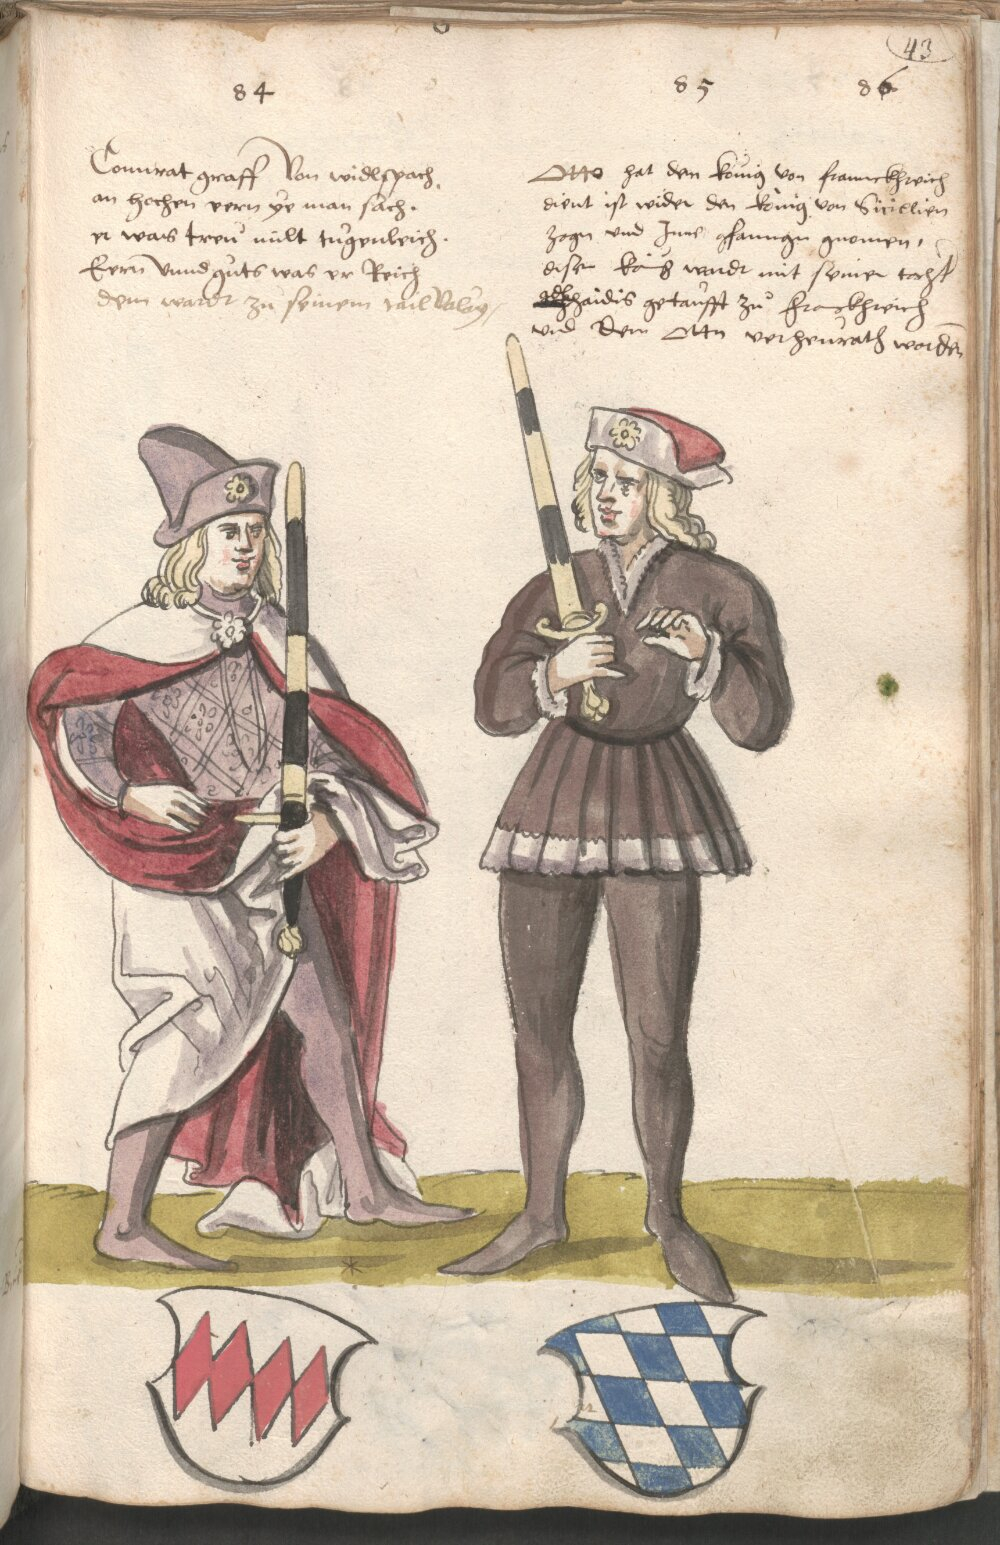 43
84
Connrat graff Von widlspach
an hochen eern ye man sach.
er was treu milt tugenleich.
Eern Vnnd guts was er Reich
dem wardt zu seinem tail
85 86
Otto hat dem konig von frannckhreich
dient ist wider den konig von Sicillien
zogn vnd Inne gfanngn gnomen,
diser konig wardt mit seiner tocht
haidis getaufft zu franckhreich
vnd dem Otto verheurath worden